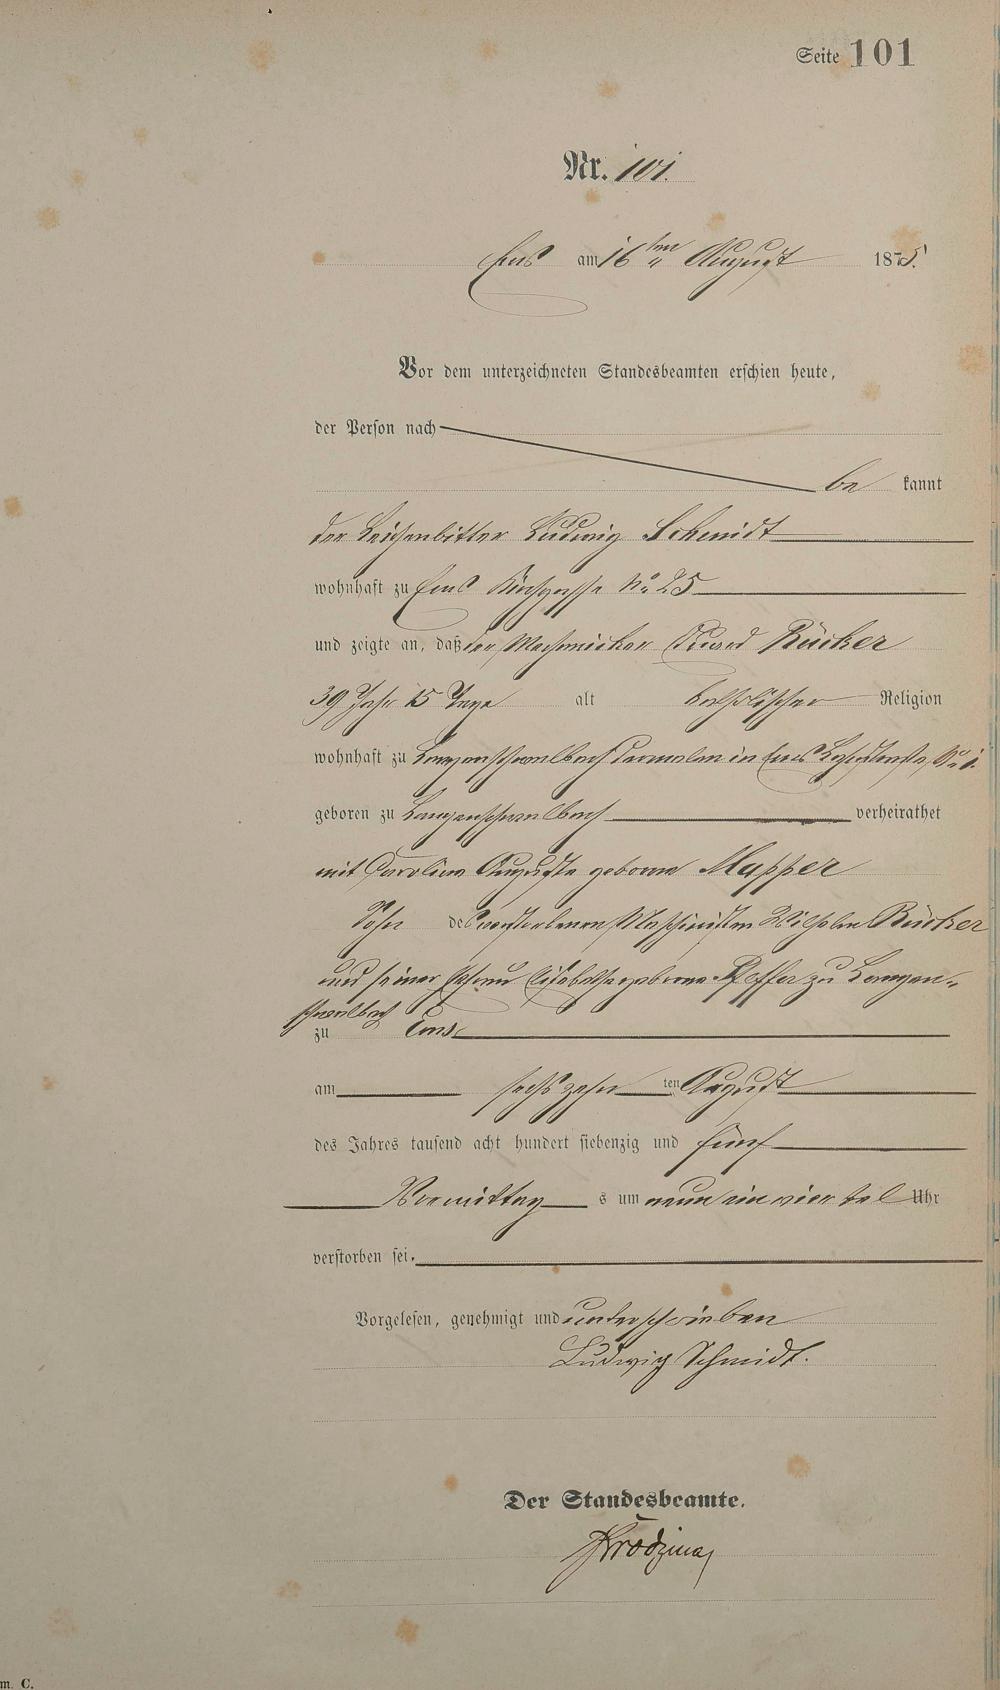 Seite 101
Nr. 101.
Ems am 16ten August 1875.
Vor dem unterzeichneten Standesbeamten erschien heute,
der Person nach
be kannt
der Leichenbitter Ludwig Schmidt
wohnhaft zu Ems Kirchgasse No 25
und zeigte an, daß der Rücker
39 Jahr 15 Tage alt katholischer Religion
wohnhaft zu Langenschwalbach dermalen in Ems
geboren zu Langenschwalbach verheirathet
mit Caroline Auguste geborne Mapper
Sohn des verstorbenen Maschinisten Wilhelm Rücker
und seiner Ehefrau Elisabetha geborne zu Langen-
schwalbach
zu Ems
am sechszehn ten August
des Jahres tausend acht hundert siebenzig und fünf
Vormittag s um neun ein viertel Uhr
verstorben sei.
Vorgelesen, genehmigt und unterschrieben
Ludwig Schmidt.
Der Standesbeamte.
m. C.